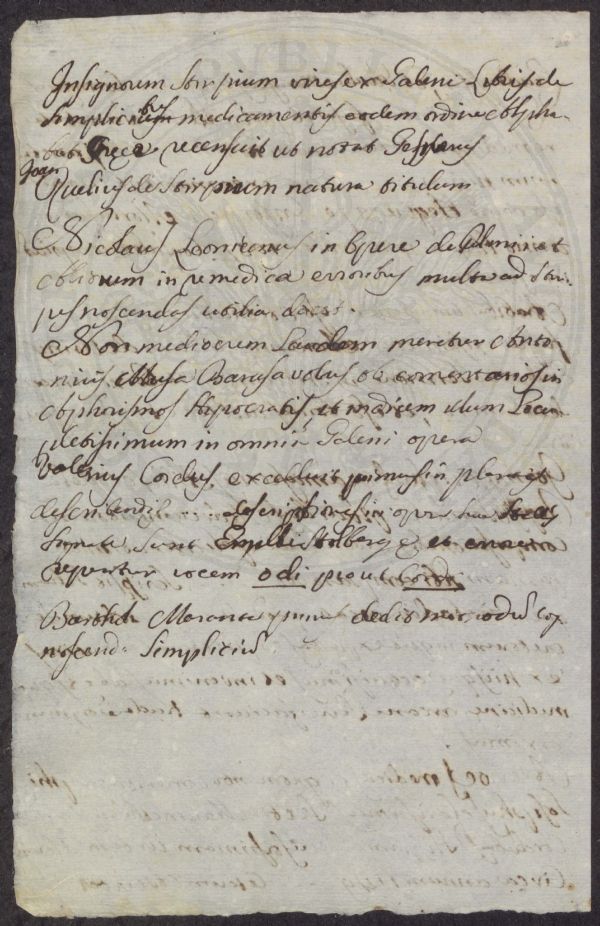 Insignorum Stirpium vires ex Galeni Libris de
simplicibus medicamentis eodem ordine Alpha-
Grece recensuit ut notat Gesnerus
Joan
Ruelius de Stirpium natura titulum
Nicolaus Leonicenus in Opere de Plinii et
Aliorum in re medica erroribus multa ad stir-
pes noscendas utilia docet.
Non mediocrem Laudem meretur Anto-
nius Musa Barasavolus ob comentarios in
Aphorismos Hypocratis, et indicem illum Locu-
pletissimum in omnia Galeni opera
Valerius Cordus excelluit primus in plantis
describendis .. descriptiones in opere
sunt et
vocem odi prout Cordi
Maranta primus dedit
noscendi Simplicium